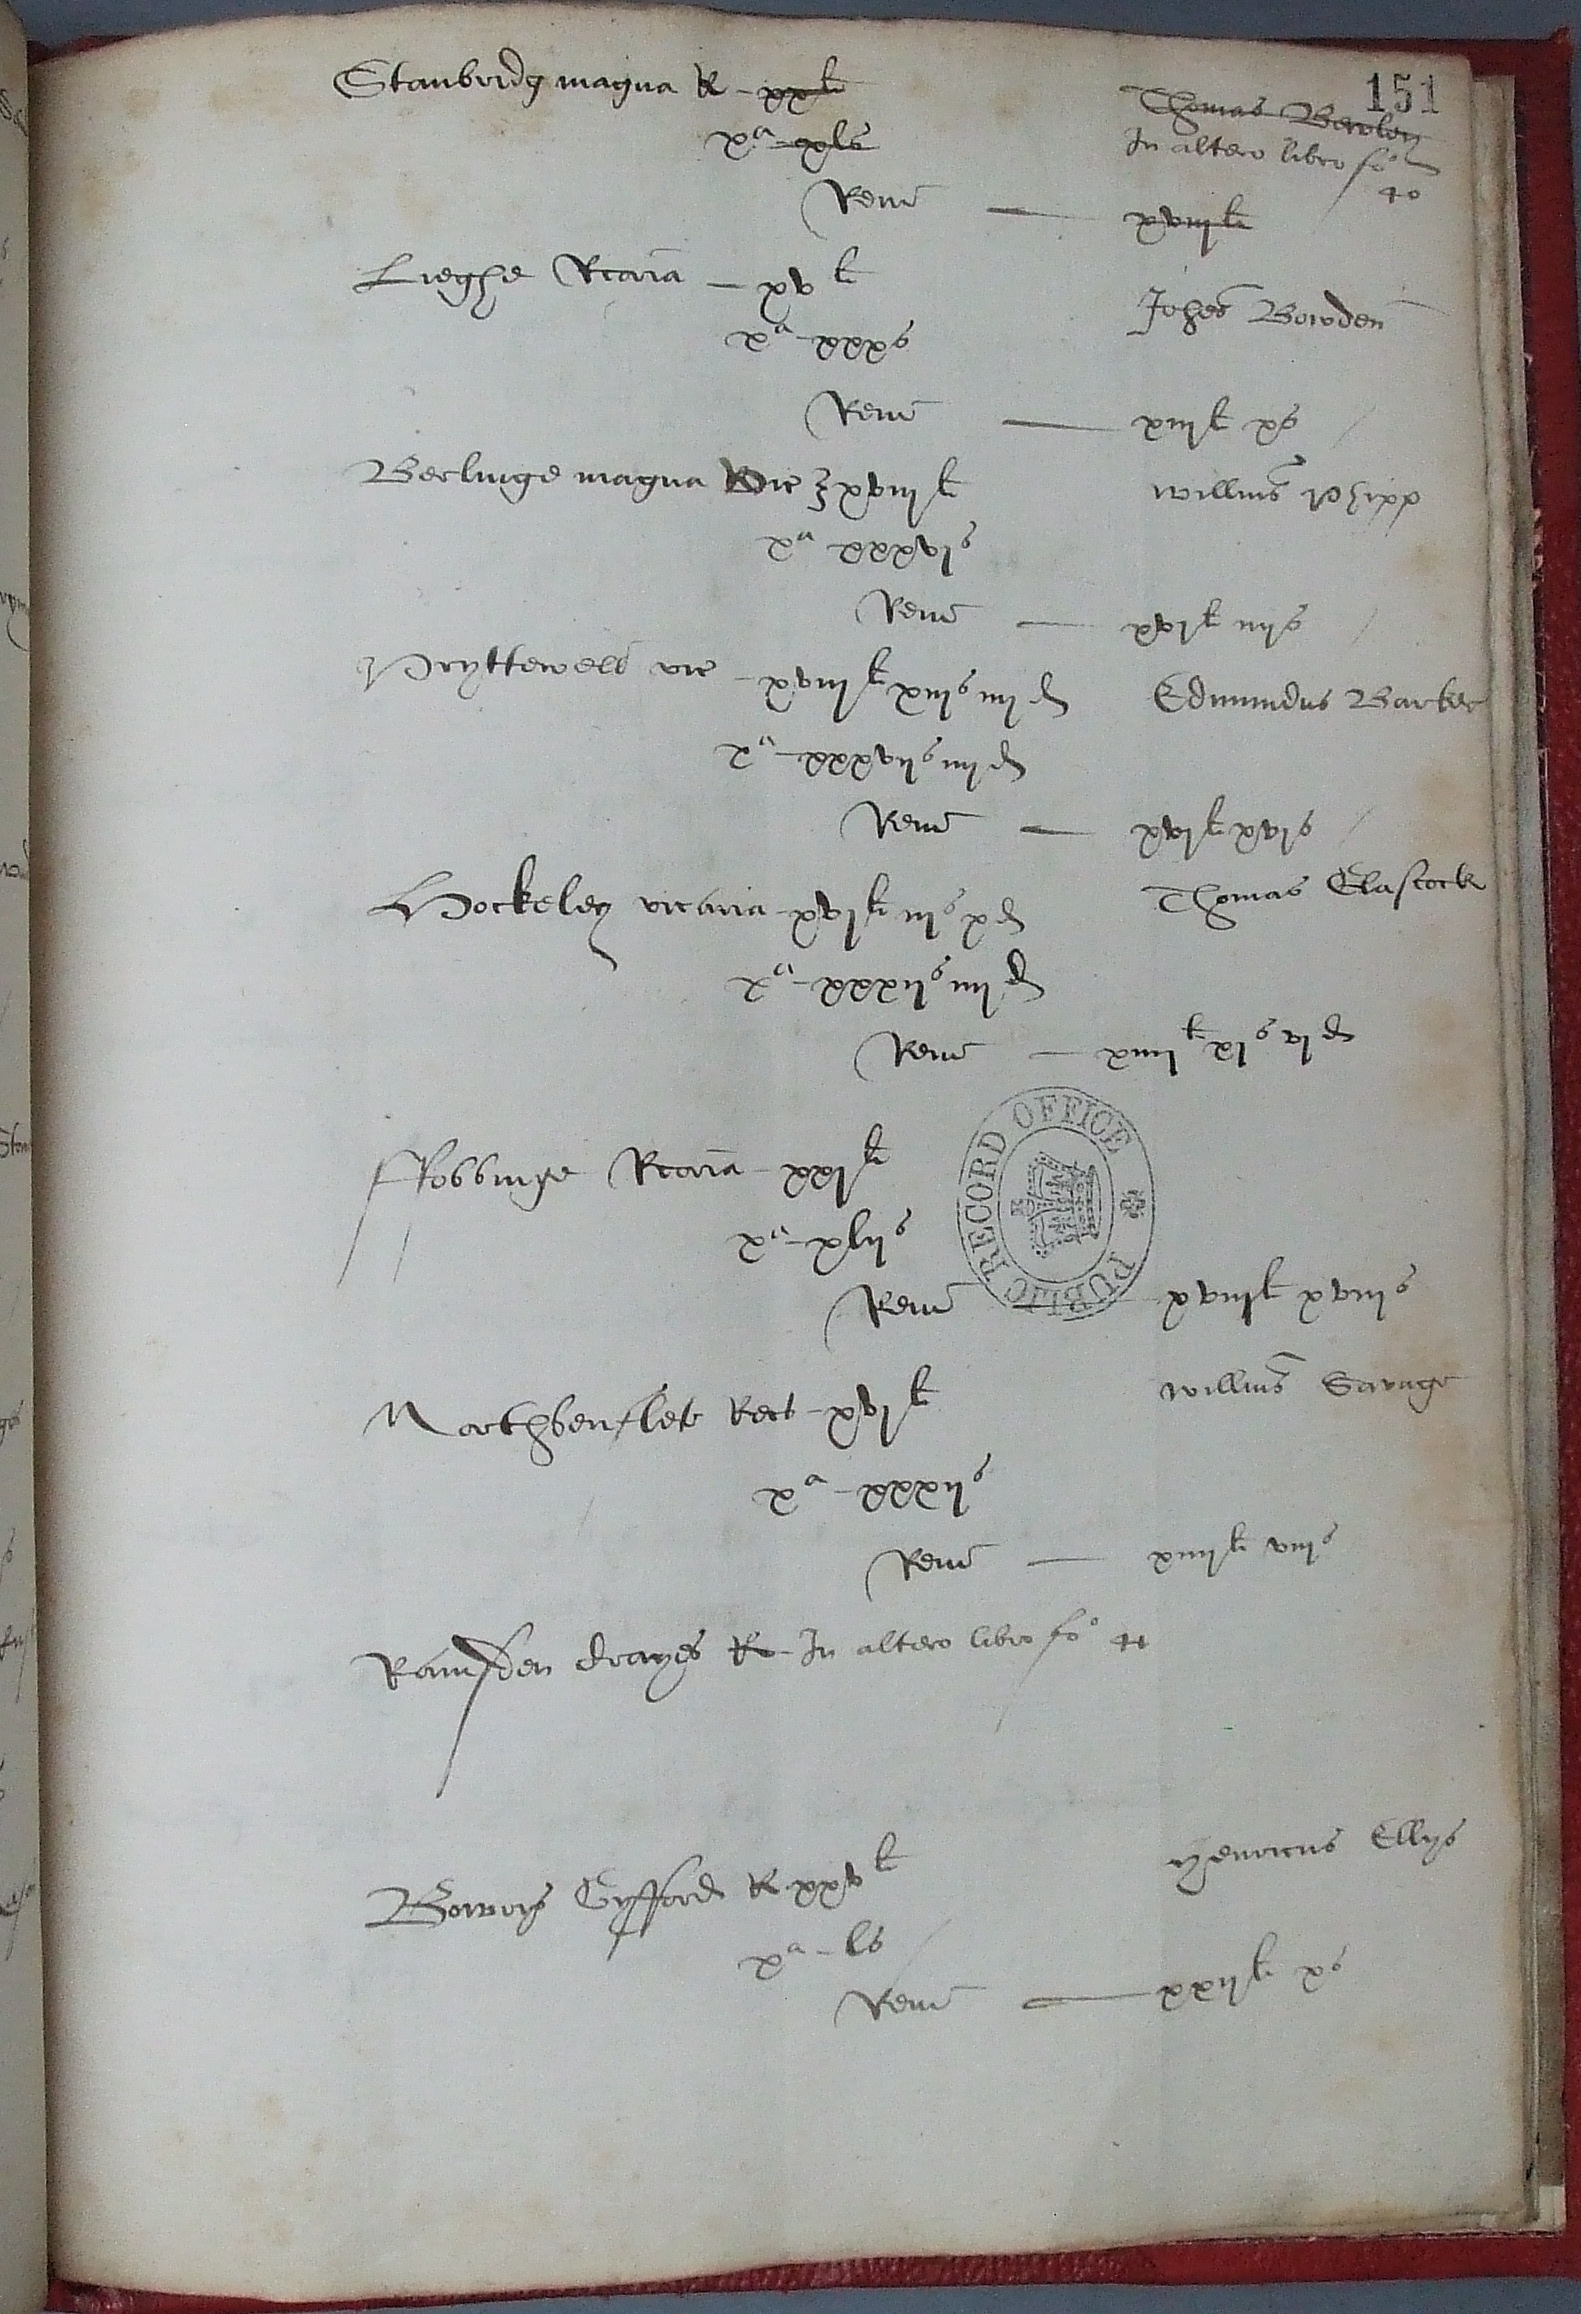 151
Stanbridg magna R - xx li Thomas Bewley
xa - xls In altero libro fo 40
Rem — xviij li
Lieghe Rcoria - xv li Johes Bowden
xa - xxxs
Rem — xiij li xs
Berlinge magna Vic xviij li Willms Phipp
xa xxxvjs
Rem — xvj li iiijs
Pryttewell vic - xviij li xiijs iiijd Edmundus Barker
xa - xxxvijs iiijd
Rem — xvj li xvjs
Hockeley vicaria - xvj li iijs xd Thomas Glascock
xa - xxxijs iiijd
Rem — xiiij li xjs vjd
ffobbinge Rcoria - xxj li
xa - xlijs
Rem — xviij li xviijs
PUBLIC RECORD OFFICE
Northbenflete Rect - xvj li Willms Savage
xa - xxxijs
Rem — xiiij li viijs
Ramsden Crayes R - In altero libro fo 41
Bowrs Gyfford R xxv li Henricus Ellys
xa - ls
Rem — xxij li xs